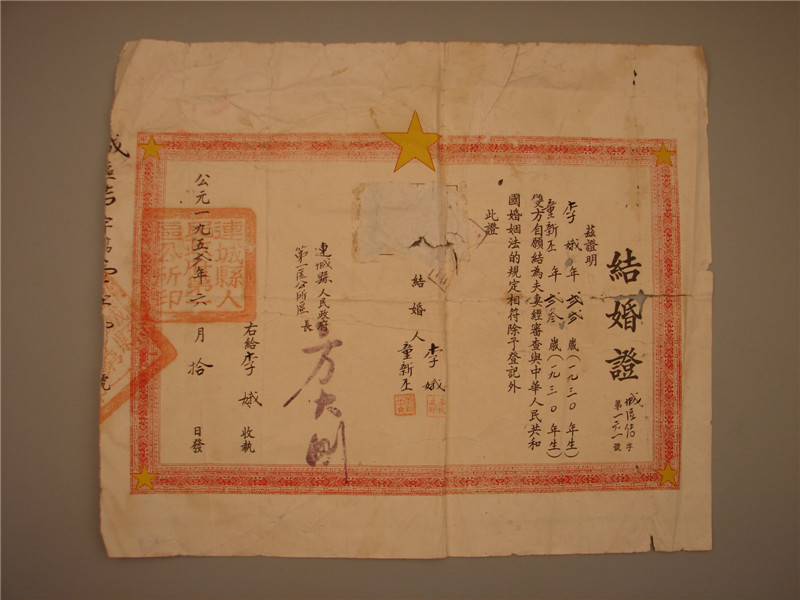 結婚證
城區結字
第一六一號
茲證明
李娥 年 弍弍 歲(一九三〇年生)
童新丕 年 弍叁 歲(一九三〇年生)
雙方自願結為夫妻經審查與中華人民共和
國婚姻法的規定相符除予登記外
此證
結婚人 李娥
童新丕
連城縣人民政府
第一區公所區長
右給李娥收執
公元一九五 年六月拾日發
連城縣人
區公所印
號